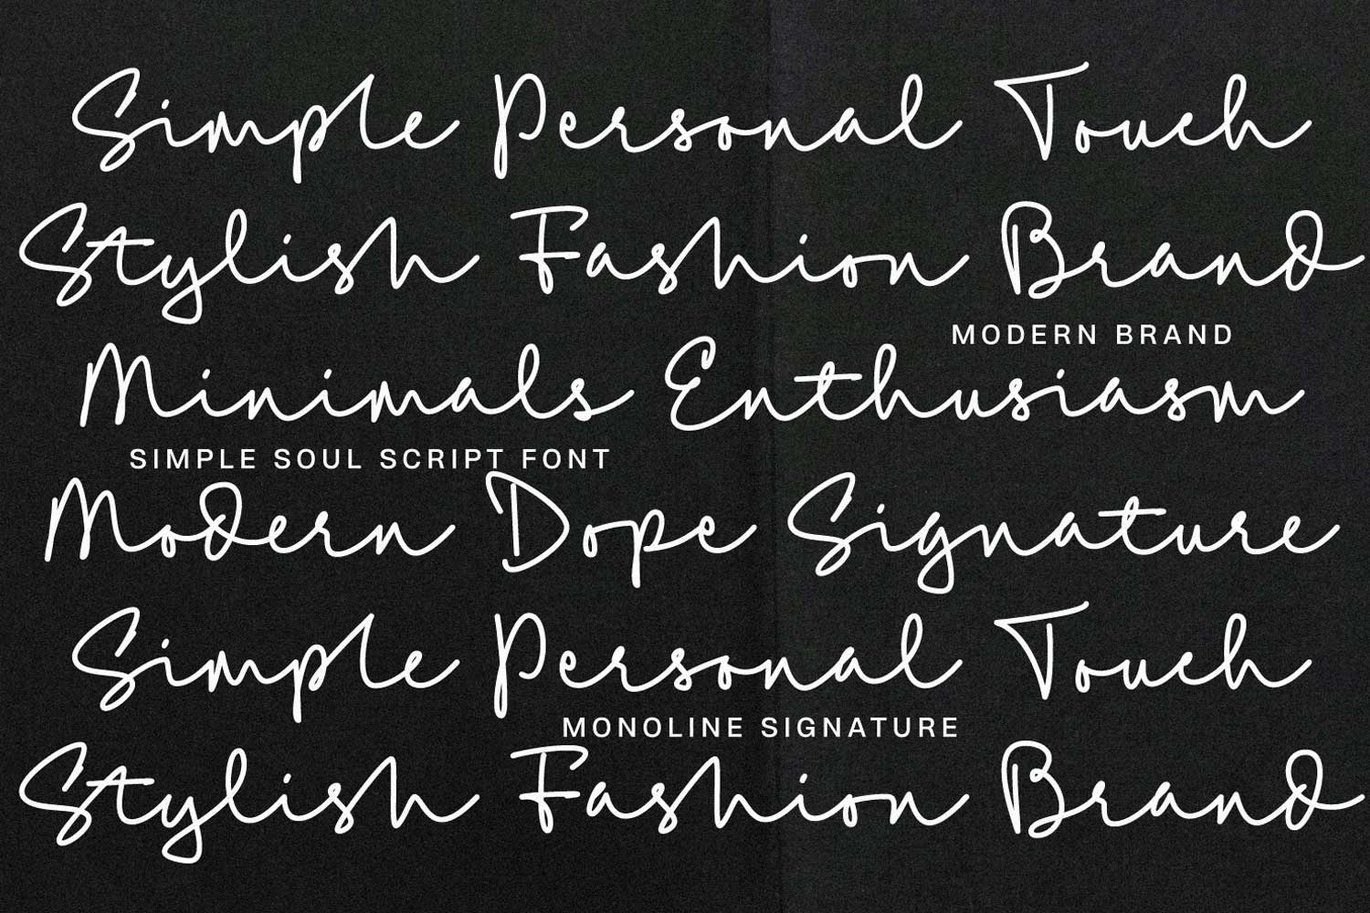 Simple Personal Touch
Stylish Fashion Brand
MODERN BRAND
Minimals Enthusiasm
SIMPLE SOUL SCRIPT FONT
Modern Dope Signature
Simple Personal Touch
MONOLINE SIGNATURE
Stylish Fashion Brand